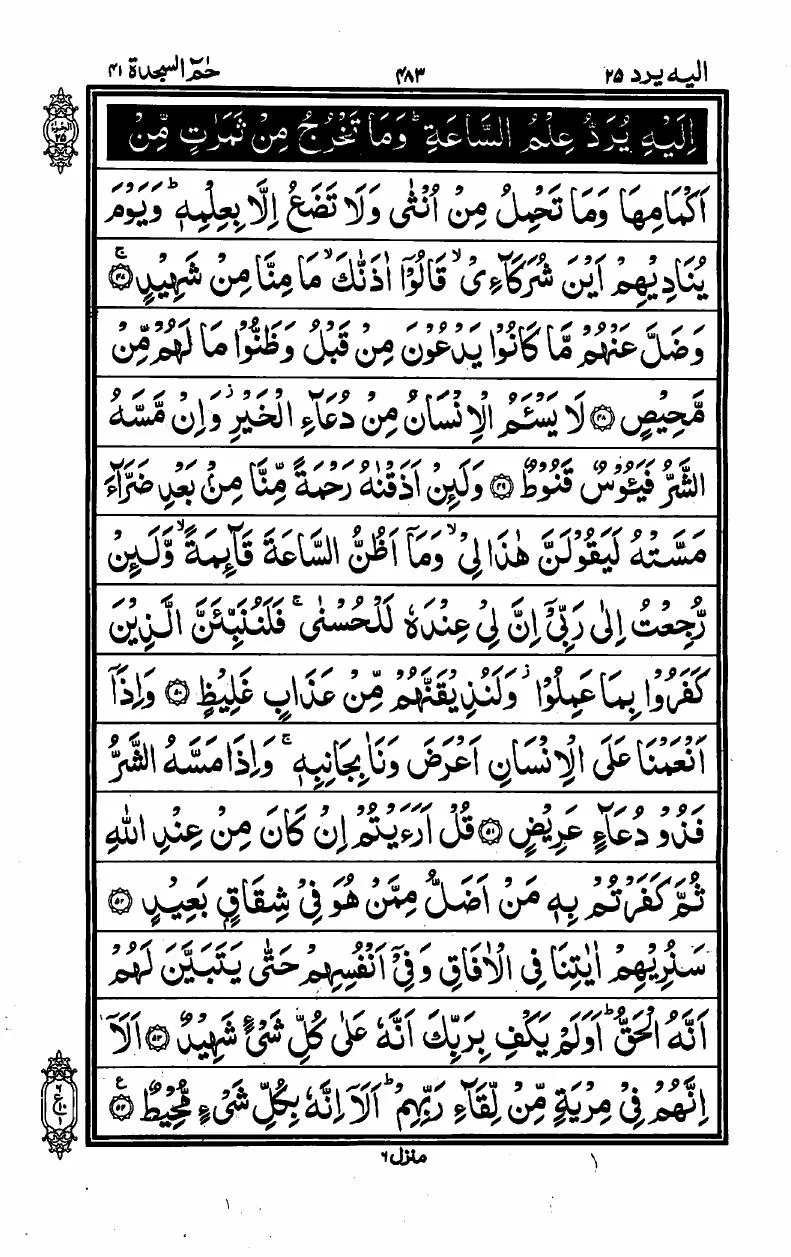 الیه یرد ۲۵ ۴۸۳ حٰمٓ السجدة ۴۱
الجزء ۲۵
اِلَیْهِ یُرَدُّ عِلْمُ السَّاعَةِ ؕ وَمَا تَخْرُجُ مِنْ ثَمَرٰتٍ مِّنْ
اَكْمَامِهَا وَمَا تَحْمِلُ مِنْ اُنْثٰی وَلَا تَضَعُ اِلَّا بِعِلْمِهٖ ؕ وَیَوْمَ
یُنَادِیْهِمْ اَیْنَ شُرَكَآءِیْ ۙ قَالُوْۤا اٰذَنّٰكَ ۙ مَا مِنَّا مِنْ شَهِیْدٍ ۚ‏﴿۴۷﴾
وَضَلَّ عَنْهُمْ مَّا كَانُوْا یَدْعُوْنَ مِنْ قَبْلُ وَظَنُّوْا مَا لَهُمْ مِّنْ
مَّحِیْصٍ ﴿۴۸﴾ لَا یَسْـَٔمُ الْاِنْسَانُ مِنْ دُعَآءِ الْخَیْرِ ؗ وَاِنْ مَّسَّهُ
الشَّرُّ فَیَـُٔوْسٌ قَنُوْطٌ ﴿۴۹﴾ وَلَىِٕنْ اَذَقْنٰهُ رَحْمَةً مِّنَّا مِنْۢ بَعْدِ ضَرَّآءَ
مَسَّتْهُ لَیَقُوْلَنَّ هٰذَا لِیْ ۙ وَمَاۤ اَظُنُّ السَّاعَةَ قَآىِٕمَةً ۙ وَّلَىِٕنْ
رُّجِعْتُ اِلٰی رَبِّیْۤ اِنَّ لِیْ عِنْدَهٗ لَلْحُسْنٰی ۚ فَلَنُنَبِّئَنَّ الَّذِیْنَ
كَفَرُوْا بِمَا عَمِلُوْا ؗ وَلَنُذِیْقَنَّهُمْ مِّنْ عَذَابٍ غَلِیْظٍ ﴿۵۰﴾ وَاِذَاۤ
اَنْعَمْنَا عَلَی الْاِنْسَانِ اَعْرَضَ وَنَاٰ بِجَانِبِهٖ ۚ وَاِذَا مَسَّهُ الشَّرُّ
فَذُوْ دُعَآءٍ عَرِیْضٍ ﴿۵۱﴾ قُلْ اَرَءَیْتُمْ اِنْ كَانَ مِنْ عِنْدِ اللّٰهِ
ثُمَّ كَفَرْتُمْ بِهٖ مَنْ اَضَلُّ مِمَّنْ هُوَ فِیْ شِقَاقٍۭ بَعِیْدٍ ﴿۵۲﴾
سَنُرِیْهِمْ اٰیٰتِنَا فِی الْاٰفَاقِ وَفِیْۤ اَنْفُسِهِمْ حَتّٰی یَتَبَیَّنَ لَهُمْ
اَنَّهُ الْحَقُّ ؕ اَوَلَمْ یَكْفِ بِرَبِّكَ اَنَّهٗ عَلٰی كُلِّ شَیْءٍ شَهِیْدٌ ﴿۵۳﴾ اَلَاۤ
اِنَّهُمْ فِیْ مِرْیَةٍ مِّنْ لِّقَآءِ رَبِّهِمْ ؕ اَلَاۤ اِنَّهٗ بِكُلِّ شَیْءٍ مُّحِیْطٌ ﴿۵۴﴾ ع
منزل ۶